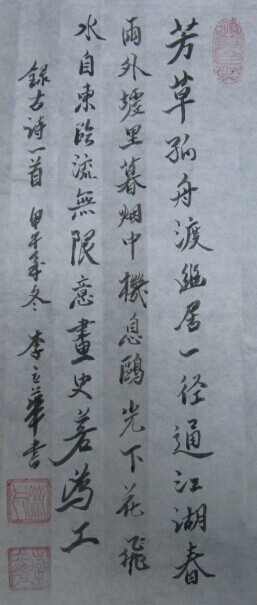 芳草孤舟渡幽居一径通江湖春
雨外墟里暮烟中機息鷗光下花飛
水自東臨流無限意畫史若為工
録古诗一首 甲午年冬 李立華書